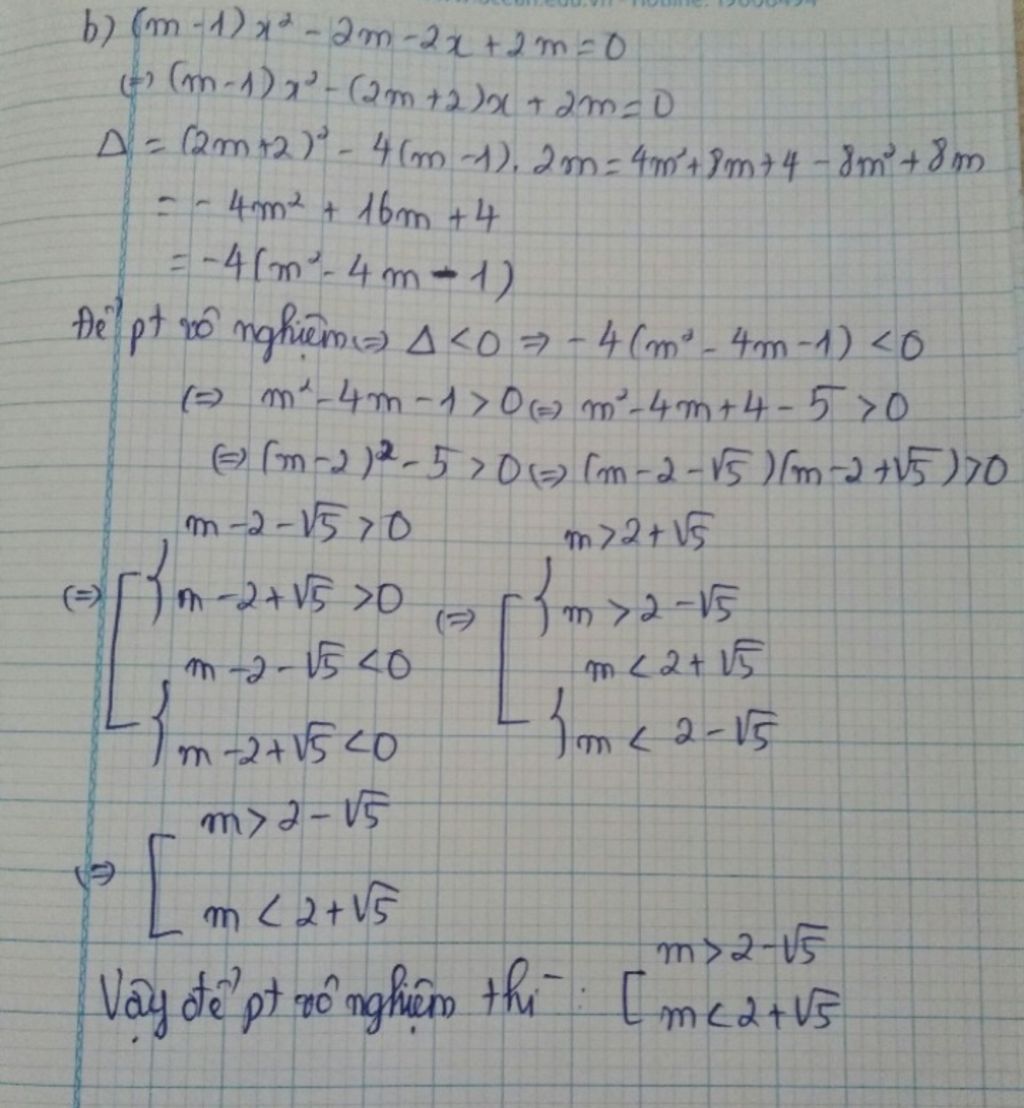 b) (m-1)x² - 2m - 2x + 2m = 0
(=) (m-1)x² - (2m+2)x + 2m = 0
Δ = (2m+2)² - 4(m-1). 2m = 4m²+8m+4 - 8m²+8m
= - 4m² + 16m + 4
= -4(m² - 4m - 1)
Để pt vô nghiệm => Δ < 0 => - 4(m² - 4m - 1) < 0
(=> m² - 4m - 1 > 0 (=) m² - 4m + 4 - 5 > 0
(=) (m-2)² - 5 > 0 (=) (m-2-√5)(m-2+√5) > 0
m-2-√5 > 0 m > 2+√5
(=> [ { m-2+√5 > 0 (=> [ { m > 2-√5
m-2-√5 < 0 m < 2+√5
{ m-2+√5 < 0 } m < 2-√5
m > 2-√5
(=> [
m < 2+√5
m > 2-√5
Vậy để pt vô nghiệm thì : [ m < 2+√5